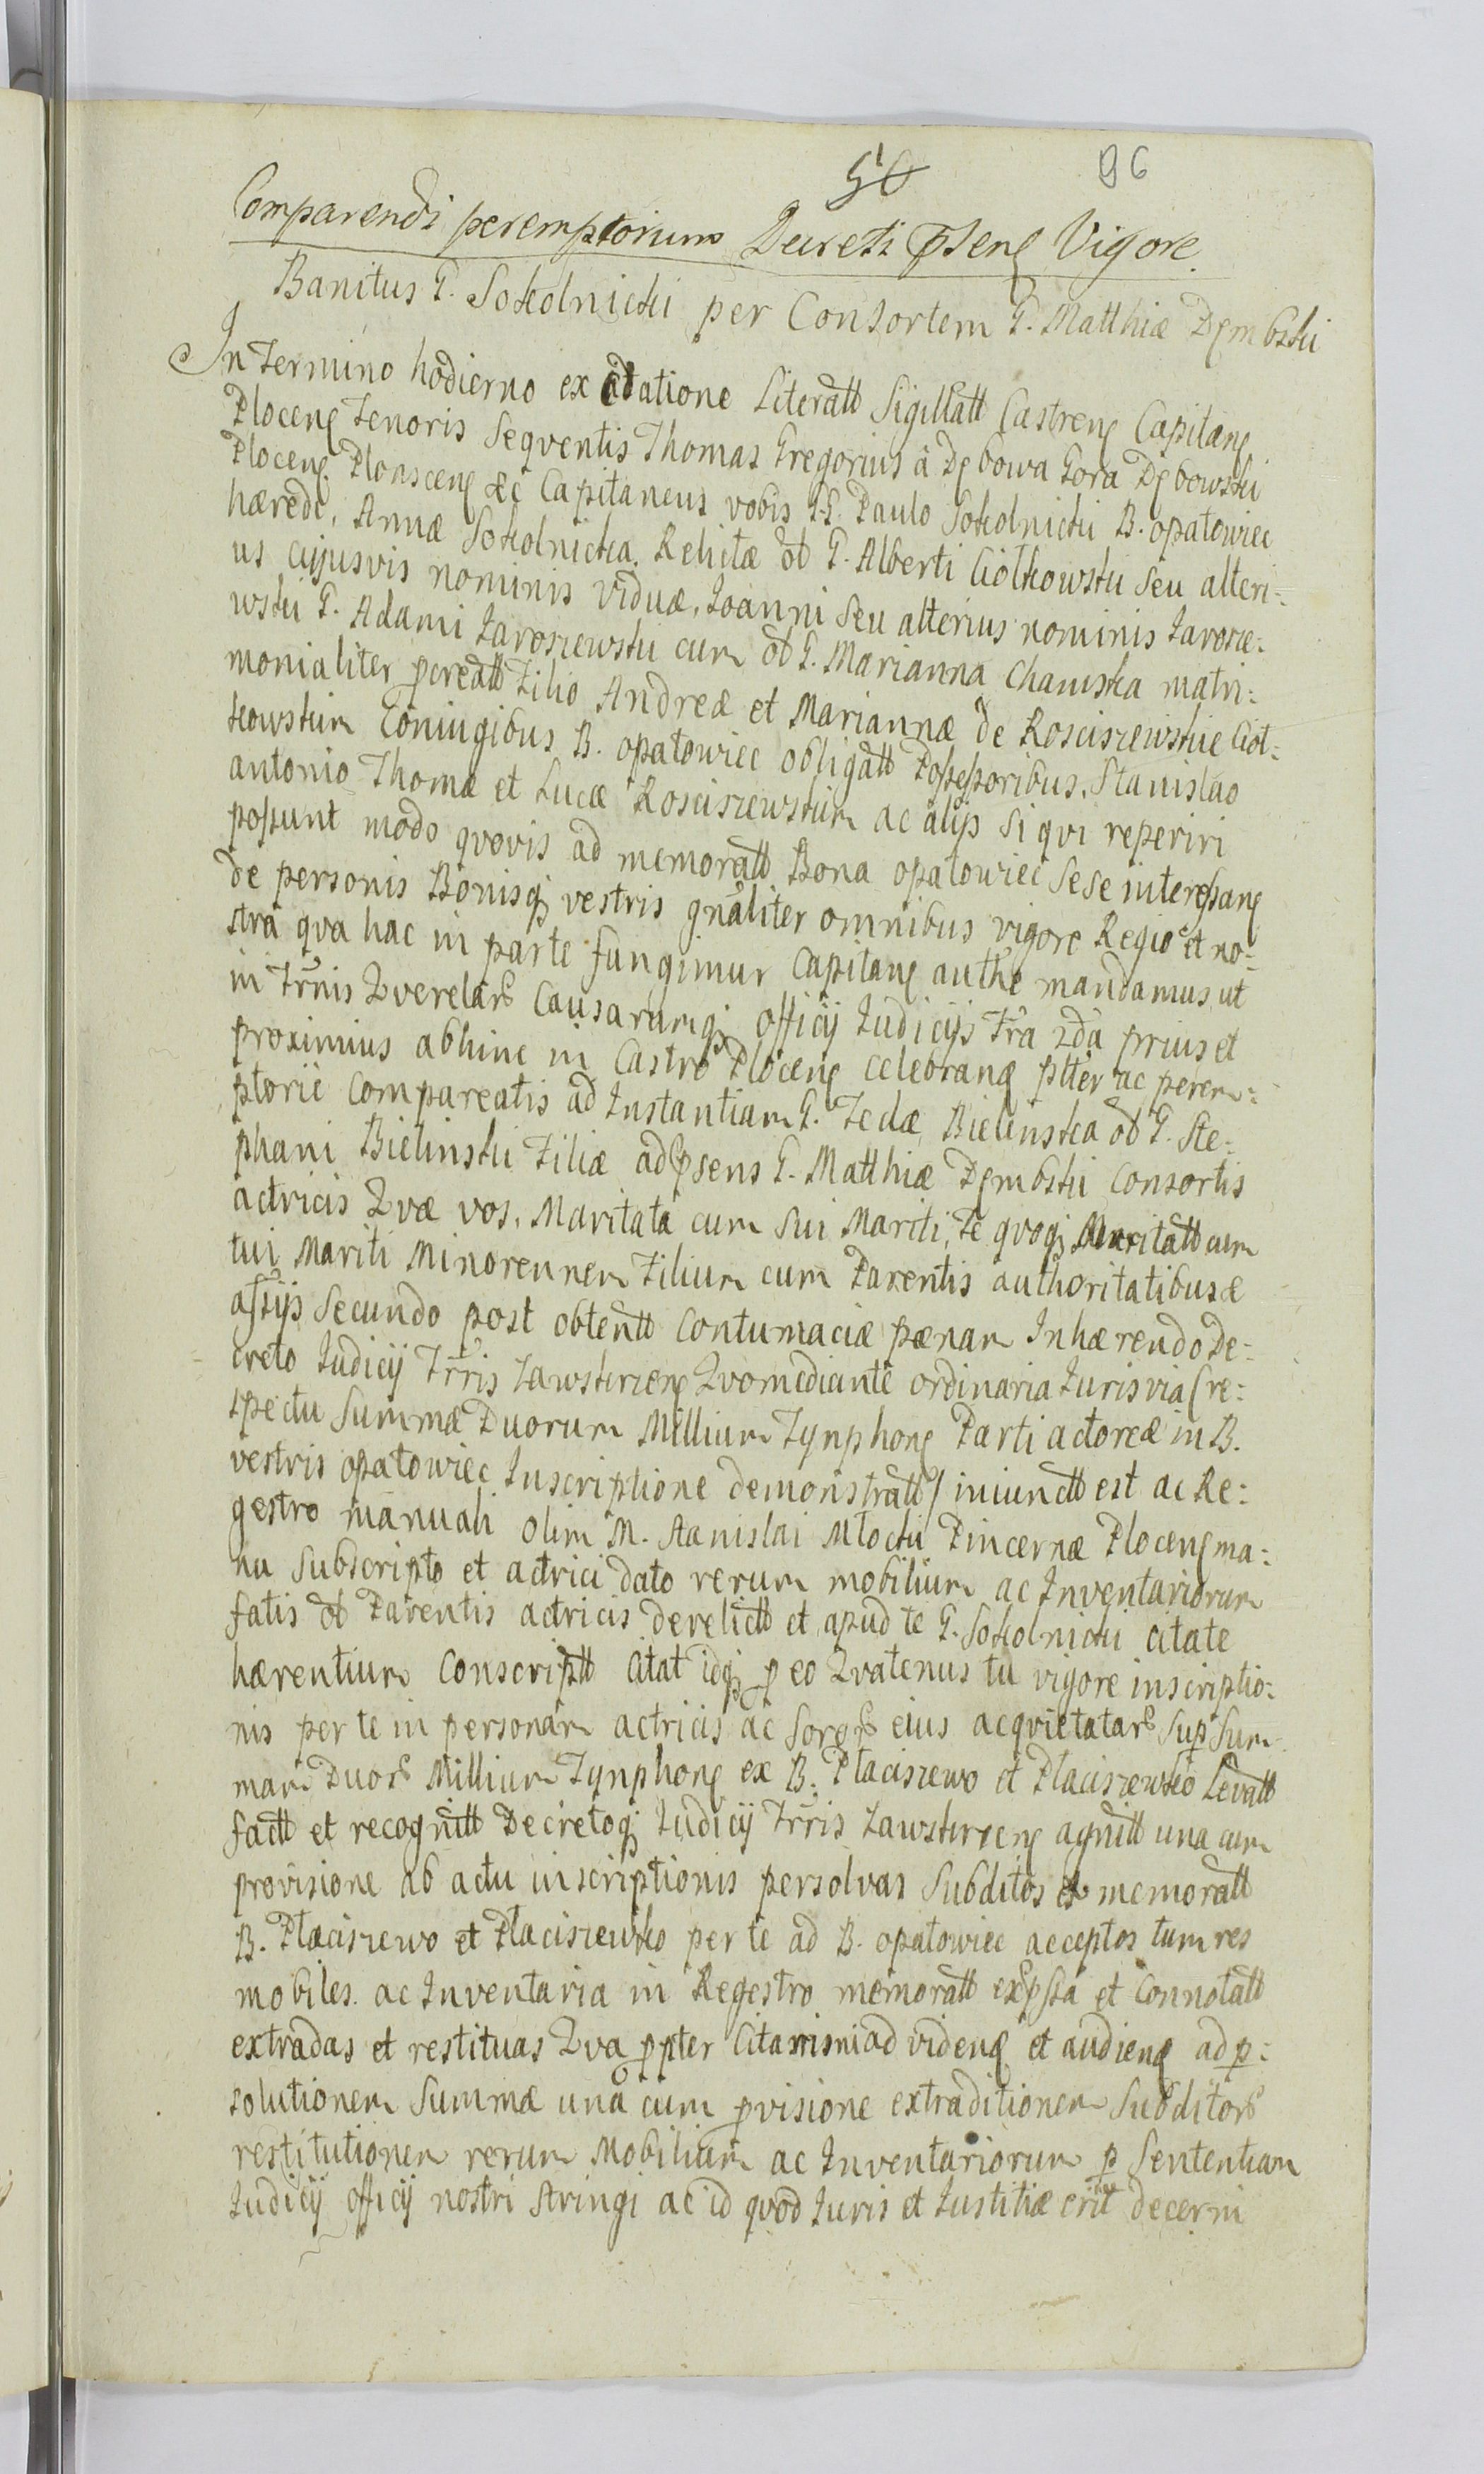 50 96
Comparendi peremptorium Decreti pntens Vigore.
Banitus G. Sokolnicki per Consortem G. Matthiæ Dęmbski
In Termino hodierno ex citatione Literatt Sigillatt Castren Capitane
Plocen Tenoris Seqventis Thomas Gregorius á Dębowa Gora Dębowski
Plocen Plonscen &c Capitaneus vobis G.G. Paulo Sokolnicki B. opatowiec
hærede, Annæ Sokolnicka Relictæ ol G. Alberti Ciołkowski seu alteri:
us cujusvis nominis Viduæ, Ioanni seu alterius nominis Iarosze:
wski G. Adami Iaroszewski cum ol G. Marianna Chamska matri:
monialiter pcreatt Filio Andreæ et Mariannæ de Rosciszewskie Cioł:
kowskim Coniugibus B. opatowiec obligatt Possessoribus, Stanislao
antonio Thomæ et Lucæ Rosciszewskim ac alijs si qvi reperiri
possunt modo qvovis ad memoratt Bona opatowiec sese interessan
de personis Bonisq vestris gnaliter omnibus vigore Regio et no:
strá qva hac in parte fungimur Capitane authe mandamus ut
in Trnis Qverelar Causarumq officij Iudicijs Fra 2da prius et
proximius abhinc in Castro Plocen celebran ptter ac perem:
ptorie Compareatis ad Instantiam G. Teclæ Bielinska ol G. Ste:
phani Bielinski Filiæ ad psens G. Matthiæ Dęmbski Consortis
actricis Qvæ vos, Maritata cum sui Mariti, Te qvoq Maritatt cum
tui Mariti Minorennem Filium cum Parentis authoritatibus &
assijs Secundo post obtentt Contumaciæ pænam Inhærendo De:
creto Iudicij Trris Zawskrzen Qvomediante ordinaria Iuris via (re:
spectu Summæ Duorum Millium Tynphon Parti actoreæ in B.
vestris opatowiec Inscriptione demonstratt) iniunctt est ac Re:
gestro manuali olim M. Stanislai Młocki Pincernæ Plocen ma:
nu subscripto et actrici dato rerum mobilium ac Inventariorum
fatis ol Parentis actricis derelictt et apud te G. Sokolnicki citate
hærentium Conscriptt Citat idq p eo Qvatenus tu vigore inscriptio:
nis per te in personam actricis ac Soror eius acqvietatar sup Sum
mam Duor Millium Tynphon ex B. Płaciszewo et Płaciszewko Levatt
factt et recognitt Decretoq Iudicij Trris Zawskrzen agnitt una cum
provisione ab actu inscriptionis persolvas Subditos ex memoratt
B. Płaciszewo et Płaciszewko per te ad B. opatowiec acceptos tum res
mobiles ac Inventaria in Regestro memoratt expssa et Connotatt
extradas et restituas Qva ppter Citamini ad viden et audien ad p:
solutionem Summæ uná cum pvisione extraditionem Subditor
restitutionem rerum Mobilium ac Inventariorum p Sententiam
Iudicij officij nostri stringi ac id qvod Iuris et Iustitiæ erit decerni